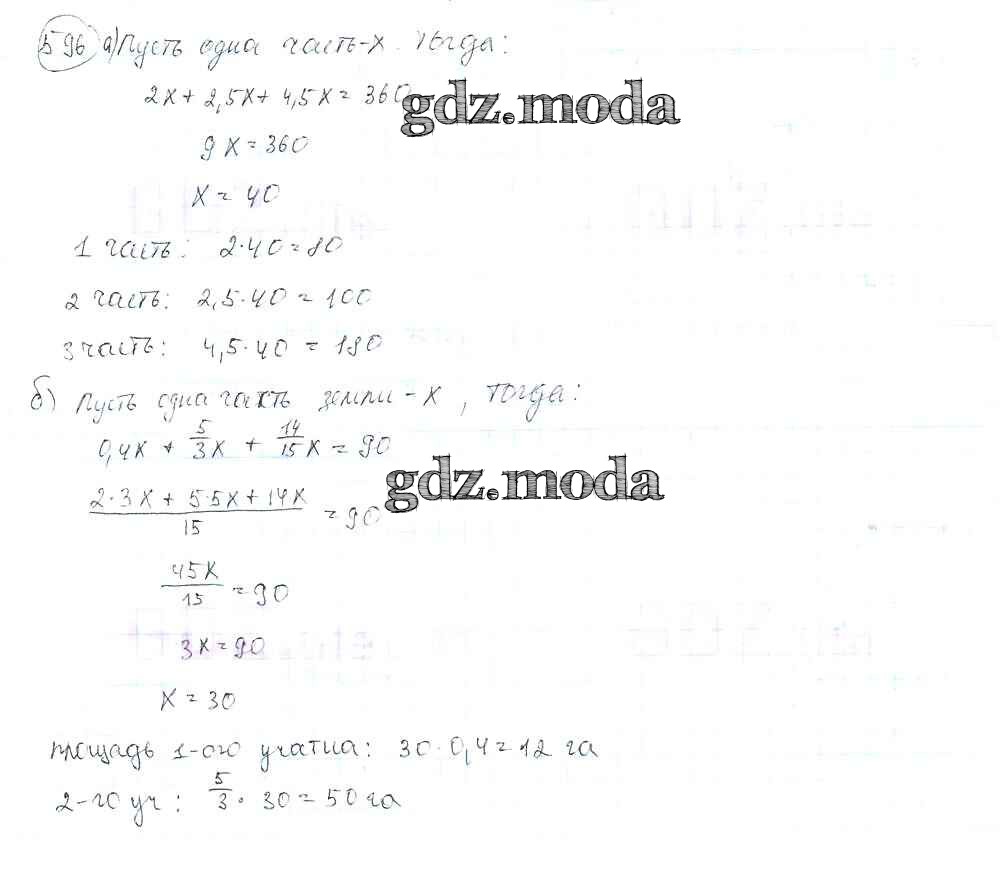 596 а) Пусть одна часть - x. Тогда:
2x + 2,5x + 4,5x = 360
gdz.moda
9x = 360
x = 40
1 часть: 2·40=80
2 часть: 2,5·40 = 100
3 часть: 4,5·40 = 180
б) Пусть одна часть земли - x, тогда:
0,4x + 5/3x + 14/15x = 90
gdz.moda
2·3x + 5·5x + 14x / 15 = 90
45x/15 = 90
3x = 90
x = 30
площадь 1-ого учатка: 30·0,4=12 га
2-го уч: 5/3 · 30 = 50 га